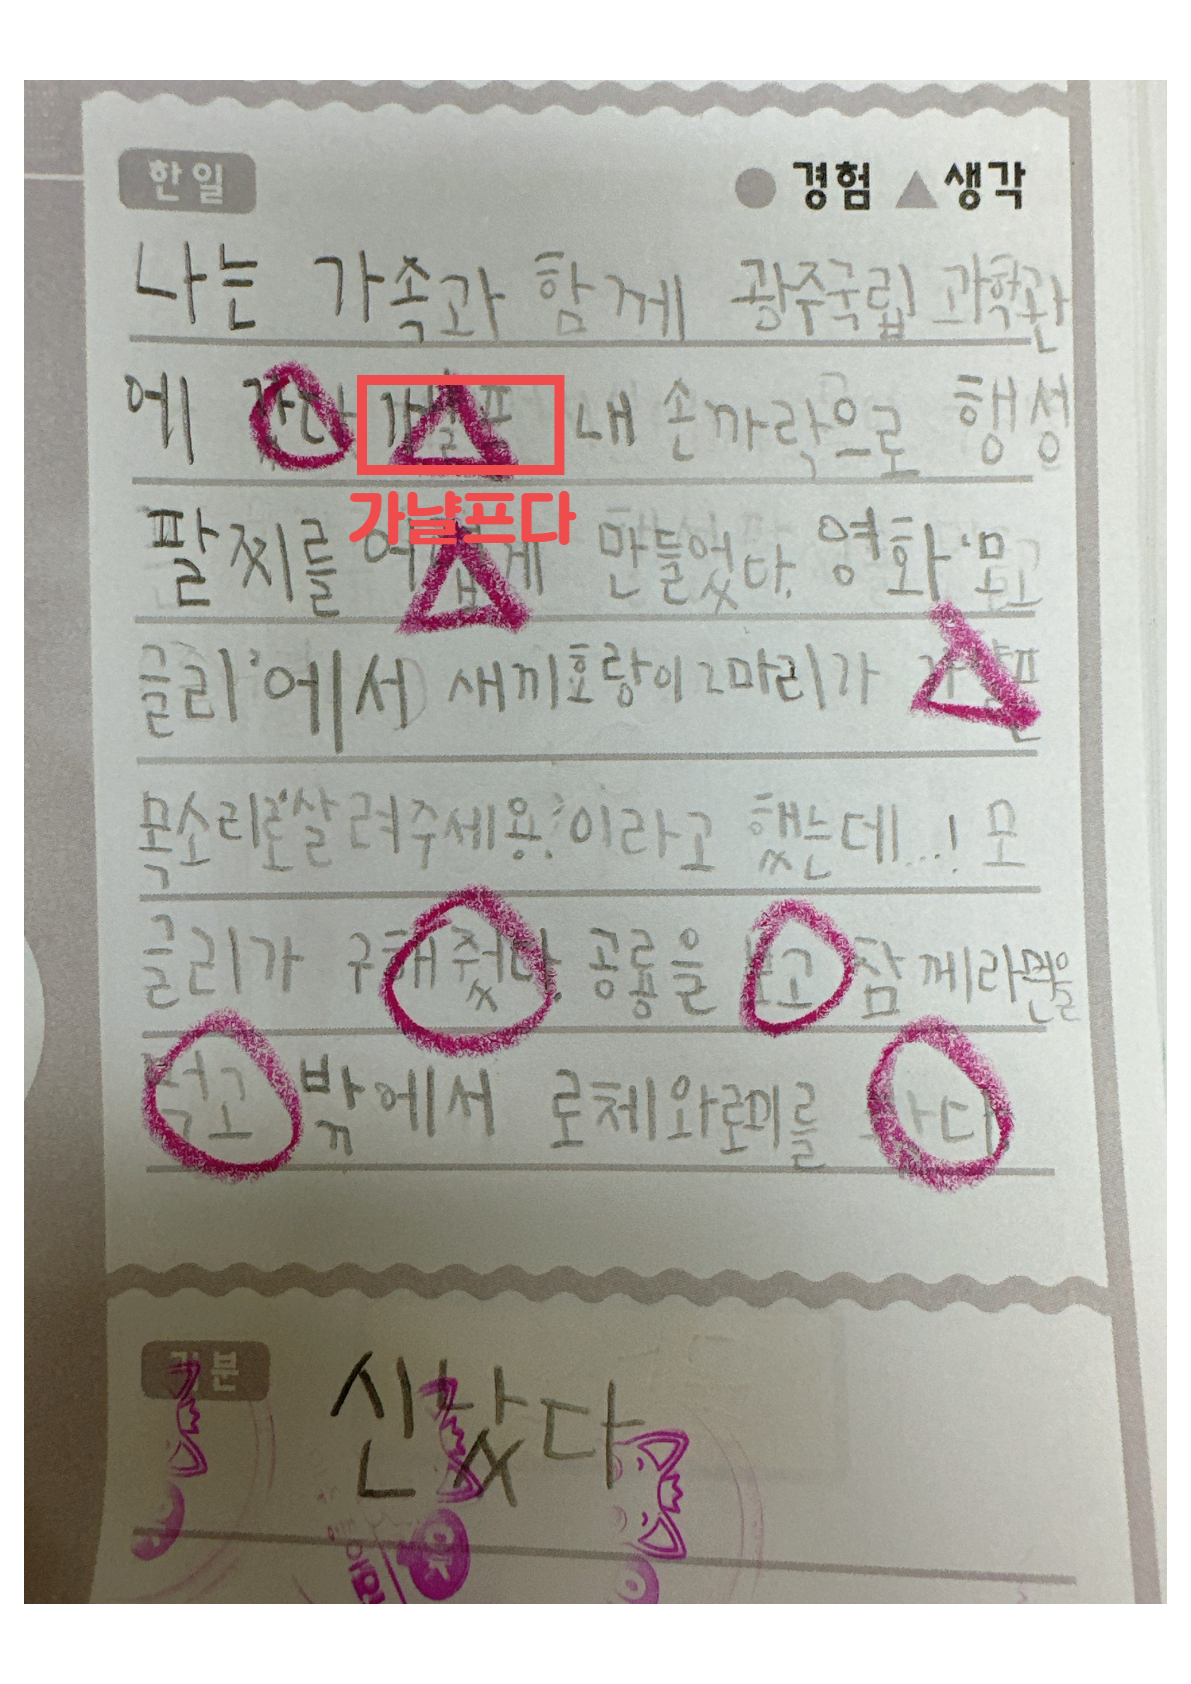 한일
● 경험 ▲ 생각
나는 가족과 함께 광주국립 과학관
에 갔다 가냘프 내 손까락으로 행성
가냘프다
팔찌를 어렵게 만들었다. 영화 '모
글리'에서 새끼호랑이 2마리가 가냘픈
목소리로"살려주세용."이라고 했는데...! 모
글리가 구해줬다. 공룡을 보고 함께라면을
먹고 밖에서 로체와로미를 다
신났다